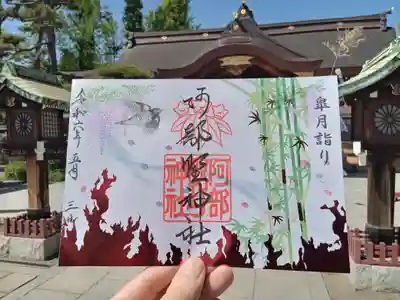 皐月詣り
阿部野神社
阿部
神社
令和六年五月三日